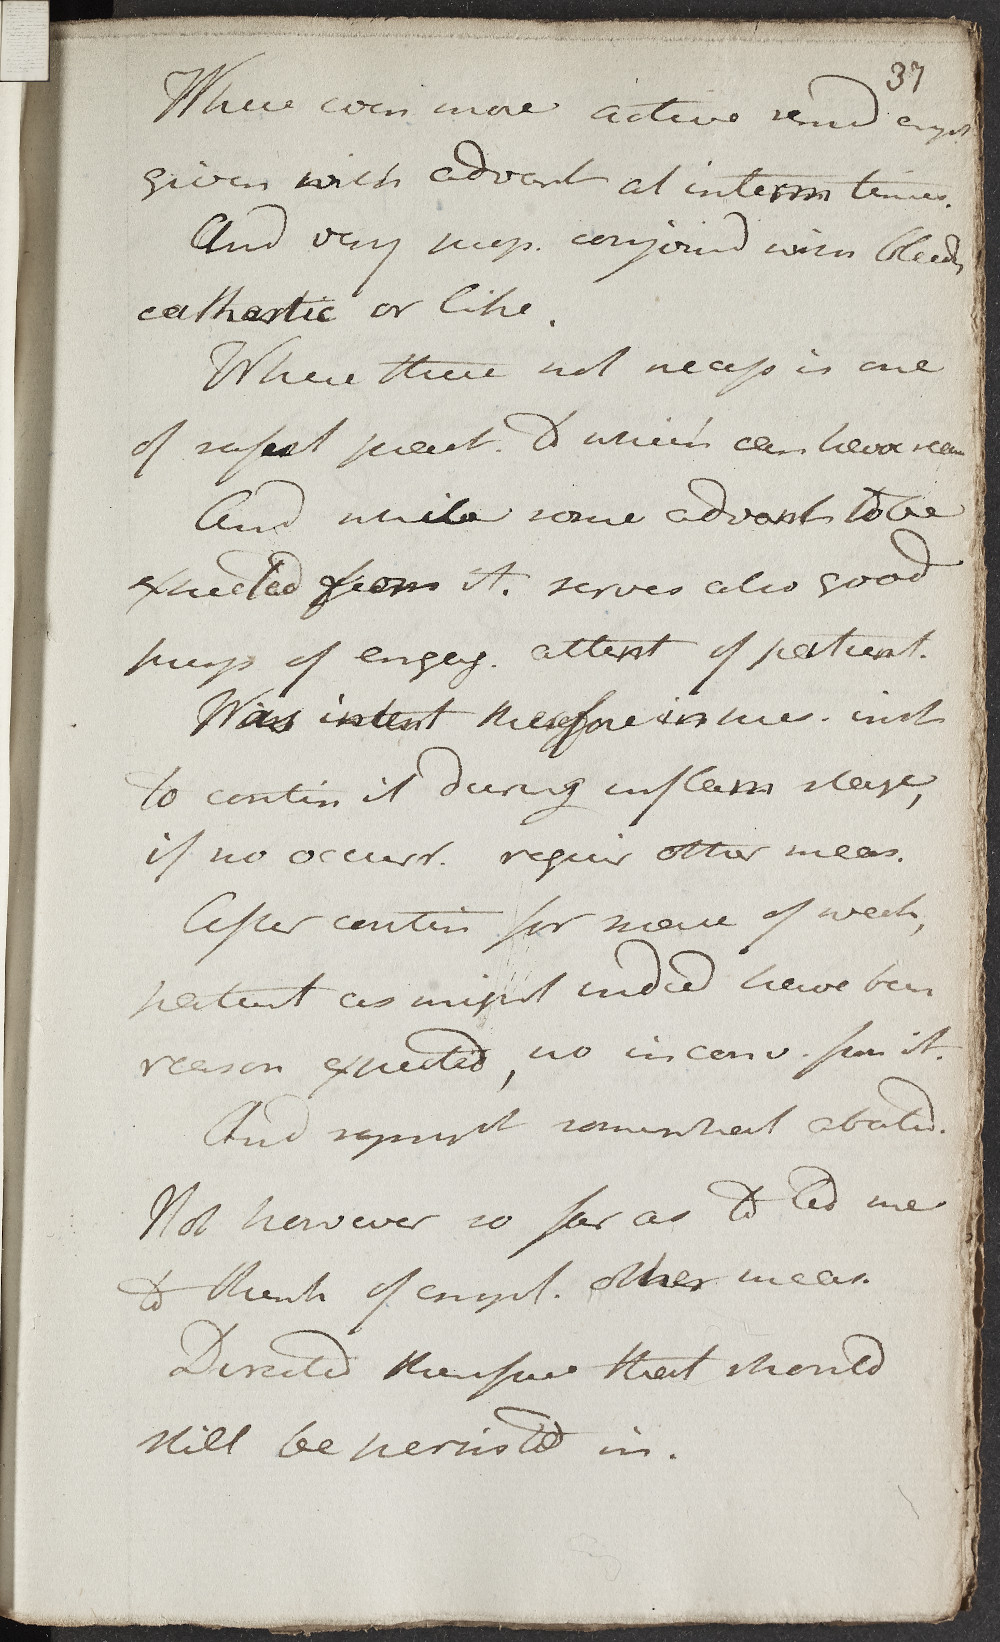 37
Where even more active remed empl
given with advant at interm times.
And very prop. conjoined with bleed
cathartic or like.
Where there not necess is one
of safest pract. to which can have recou
And while some advant to be
expected from it. serves also good
purp of engag. attent of patient.
Was intent therefore in mee. inst
to contin it during inflam stage,
if no occurr. requir other meas.
After contin for space of week,
patient as might indeed have been
reason expected, no inconv. from it.
And sympt somewhat abated.
Not however so far as to led me
to think of empl. other meas.
Directed therefore that should
still be persisted in.